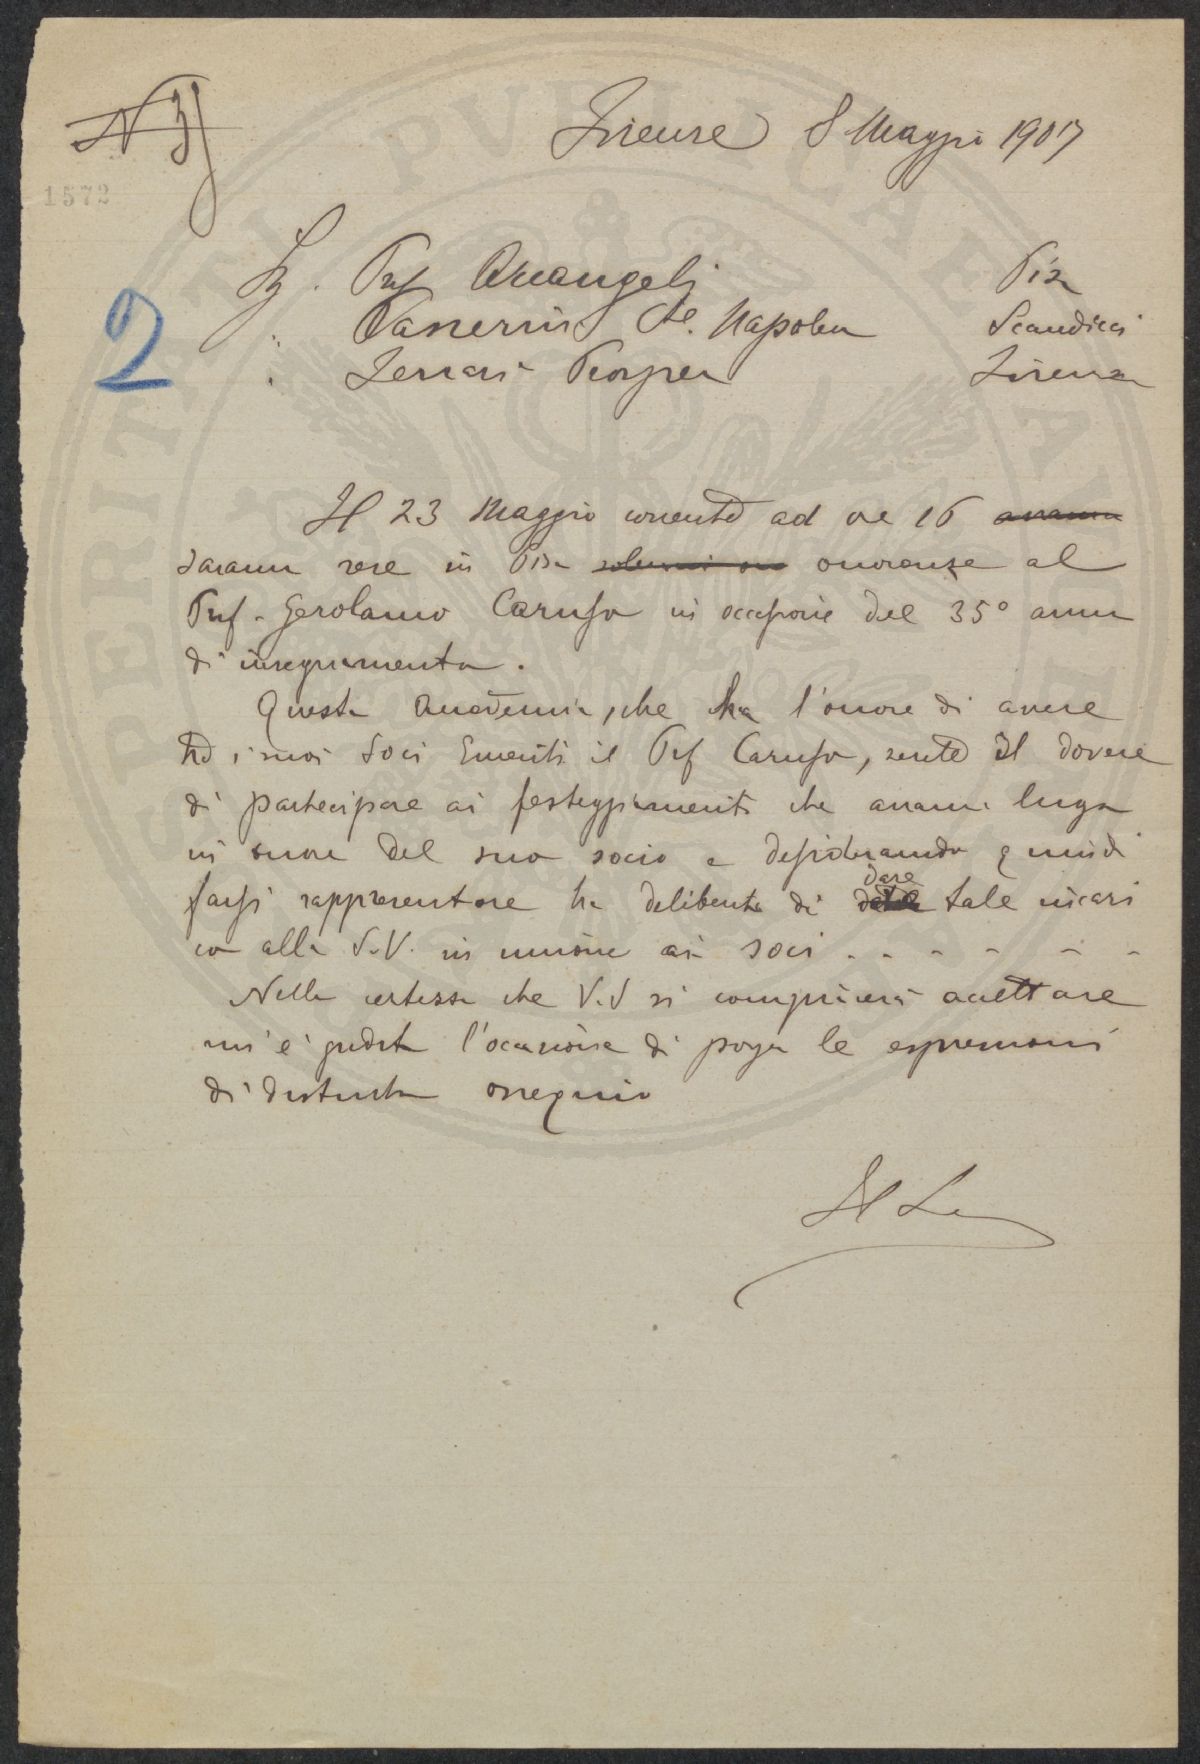 N 3
Firenze 8 Maggio 1907
1572
Prof Arcangeli Pisa
2
Passerini Cte. Napoleon Scandicci
Ferrari Prospero Firenze
Il 23 Maggio corrente ad ore 16 avranno
saranno rese in Pisa solenni on onoranze al
Prof. Gerolamo Caruso in occasione del 35° anno
di insegnamento.
Questa Accademia, che ha l'onore di avere
tra i suoi Soci Emeriti il Prof Caruso, sente il dovere
di partecipare ai festeggiamenti che avranno luogo
in onore del suo socio e desiderando quindi
farsi rappresentare ha deliberato di dare tale incari
co alla S.V. in unione ai soci . . . . . .
Nella certezza che V.S si compiacerà accettare
mi è grata l'occasione di porger le espressioni
di distinto ossequio
Il Se